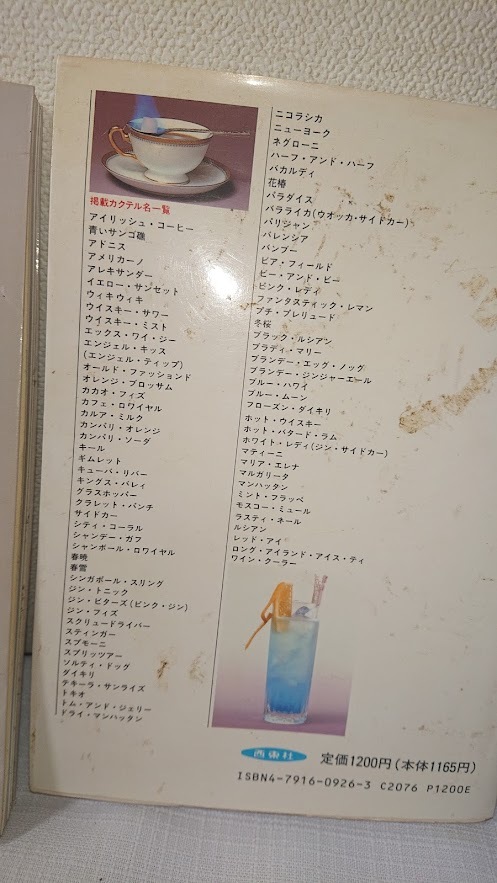 掲載カクテル名一覧
アイリッシュ・コーヒー
青いサンゴ礁
アドニス
アメリカーノ
アレキサンダー
イエロー・サンセット
ウィキウィキ
ウイスキー・サワー
ウイスキー・ミスト
エックス・ワイ・ジー
エンジェル・キッス
(エンジェル・ティップ)
オールド・ファッションド
オレンジ・ブロッサム
カカオ・フィズ
カフェ・ロワイヤル
カルア・ミルク
カンパリ・オレンジ
カンパリ・ソーダ
キール
ギムレット
キューバ・リバー
キングス・バレィ
グラスホッパー
クラレット・パンチ
サイドカー
シティ・コーラル
シャンデー・ガフ
シャンボール・ロワイヤル
春暁
春雪
シンガポール・スリング
ジン・トニック
ジン・ビターズ(ピンク・ジン)
ジン・フィズ
スクリュードライバー
スティンガー
スプモーニ
スプリッツアー
ソルティ・ドッグ
ダイキリ
テキーラ・サンライズ
トキオ
トム・アンド・ジェリー
ドライ・マンハッタン
ニコラシカ
ニューヨーク
ネグローニ
ハーフ・アンド・ハーフ
バカルディ
花椿
パラダイス
バラライカ(ウオッカ・サイドカー)
パリジャン
バレンシア
バンブー
ピア・フィールド
ビー・アンド・ビー
ピンク・レディ
ファンタスティック・レマン
プチ・プレリュード
冬桜
ブラック・ルシアン
ブラディ・マリー
ブランデー・エッグ・ノッグ
ブランデー・ジンジャーエール
ブルー・ハワイ
ブルー・ムーン
フローズン・ダイキリ
ホット・ウイスキー
ホット・バタード・ラム
ホワイト・レディ(ジン・サイドカー)
マティーニ
マリア・エレナ
マルガリータ
マンハッタン
ミント・フラッペ
モスコー・ミュール
ラスティ・ネール
ルシアン
レッド・アイ
ロング・アイランド・アイス・ティ
ワイン・クーラー
西東社
定価1200円(本体1165円)
ISBN4-7916-0926-3 C2076 P1200E